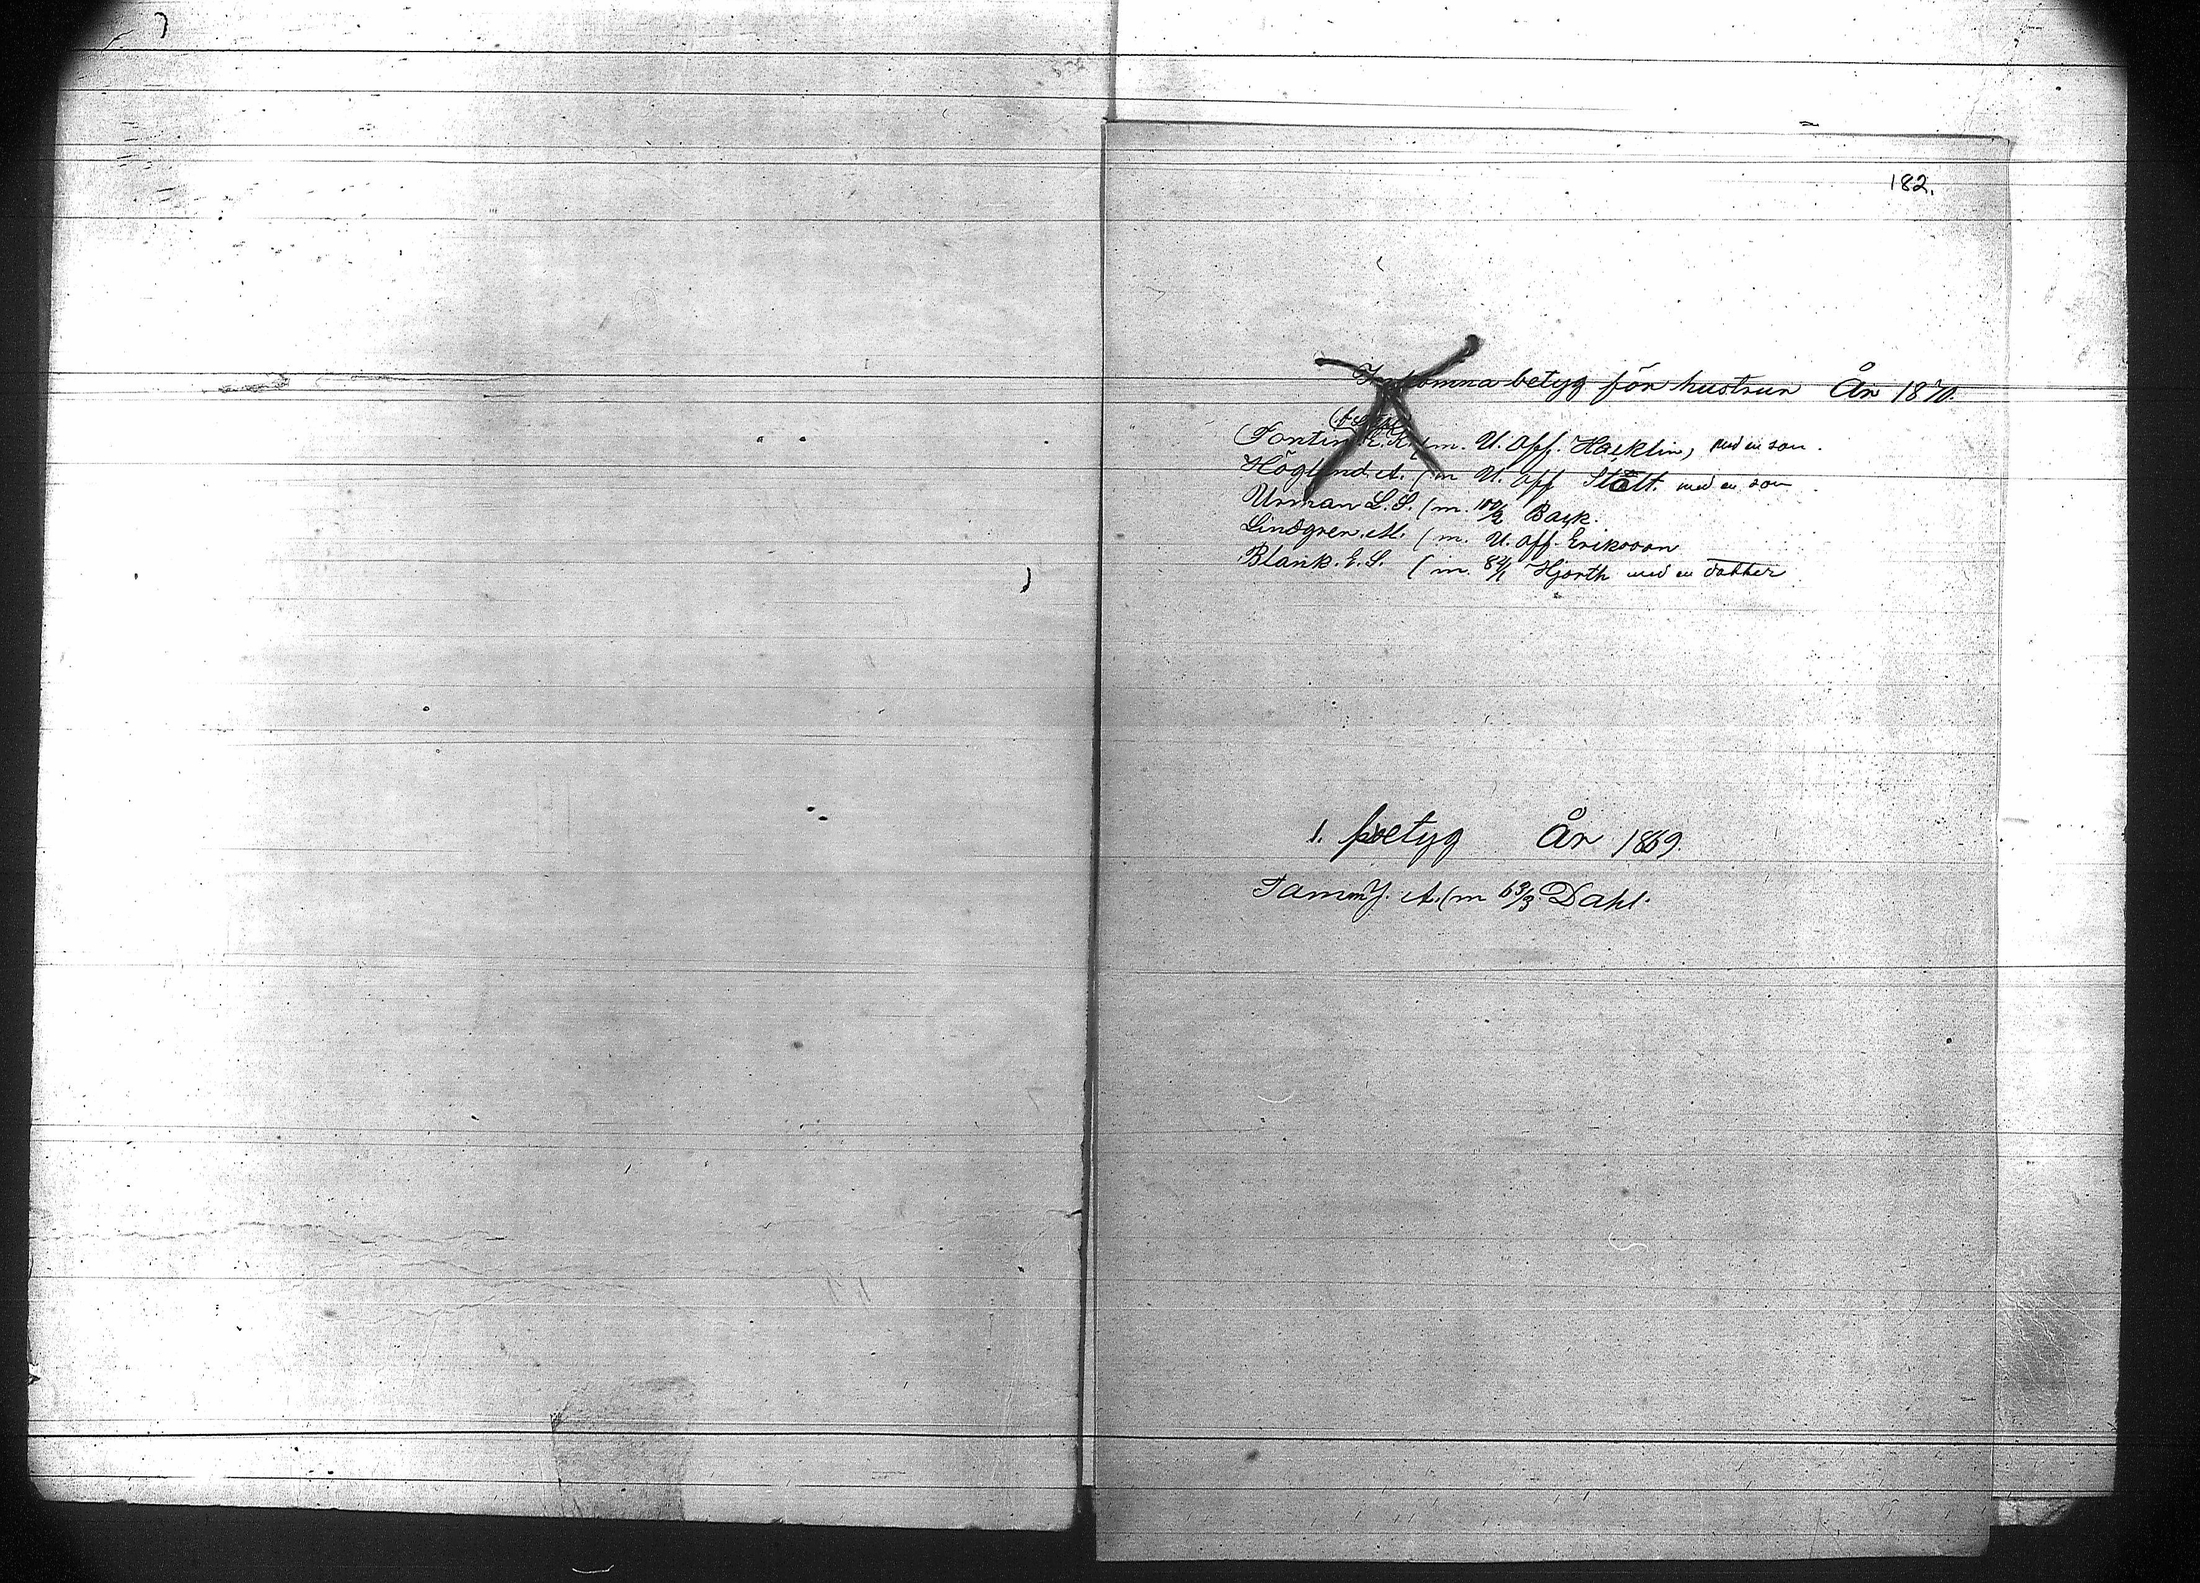 182.
Inkomna betyg för hustrur År 1870.
Fontin E. K. (m. U. Off. Hacklin, med en son.
Höglund. A. (m U. Off Stålt. med en son.
Urman L. S. (m. 100/2 Back.
Lindgren. M. (m. U. Off. Eriksson
Blank. E. S. (m. 84/1 Hjorth med en dotter
1. betyg År 1869.
Tamm J. A. (m 63/3 Dahl.